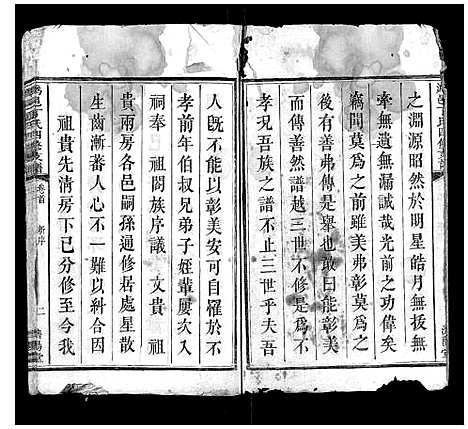 之淵源昭然於明星皓月無拔無
牽無遺無漏誠哉光前之功偉矣
竊聞莫為之前雖美弗彰莫為之
後有善弗傳是舉也敢曰能彰美
而傳善然譜越三世不修是為不
孝況吾族之譜不止三世乎夫吾
人既不能以彰美安可自罹於不
孝前年伯叔兄弟子姪輩屢次入
祠奉 祖閤族序議 文貴 祖
貴兩房各邑嗣孫通修居處星散
生齒漸蕃人心不一難以糾合因
祖貴先清房下已分修至今我
卷首 新序 二